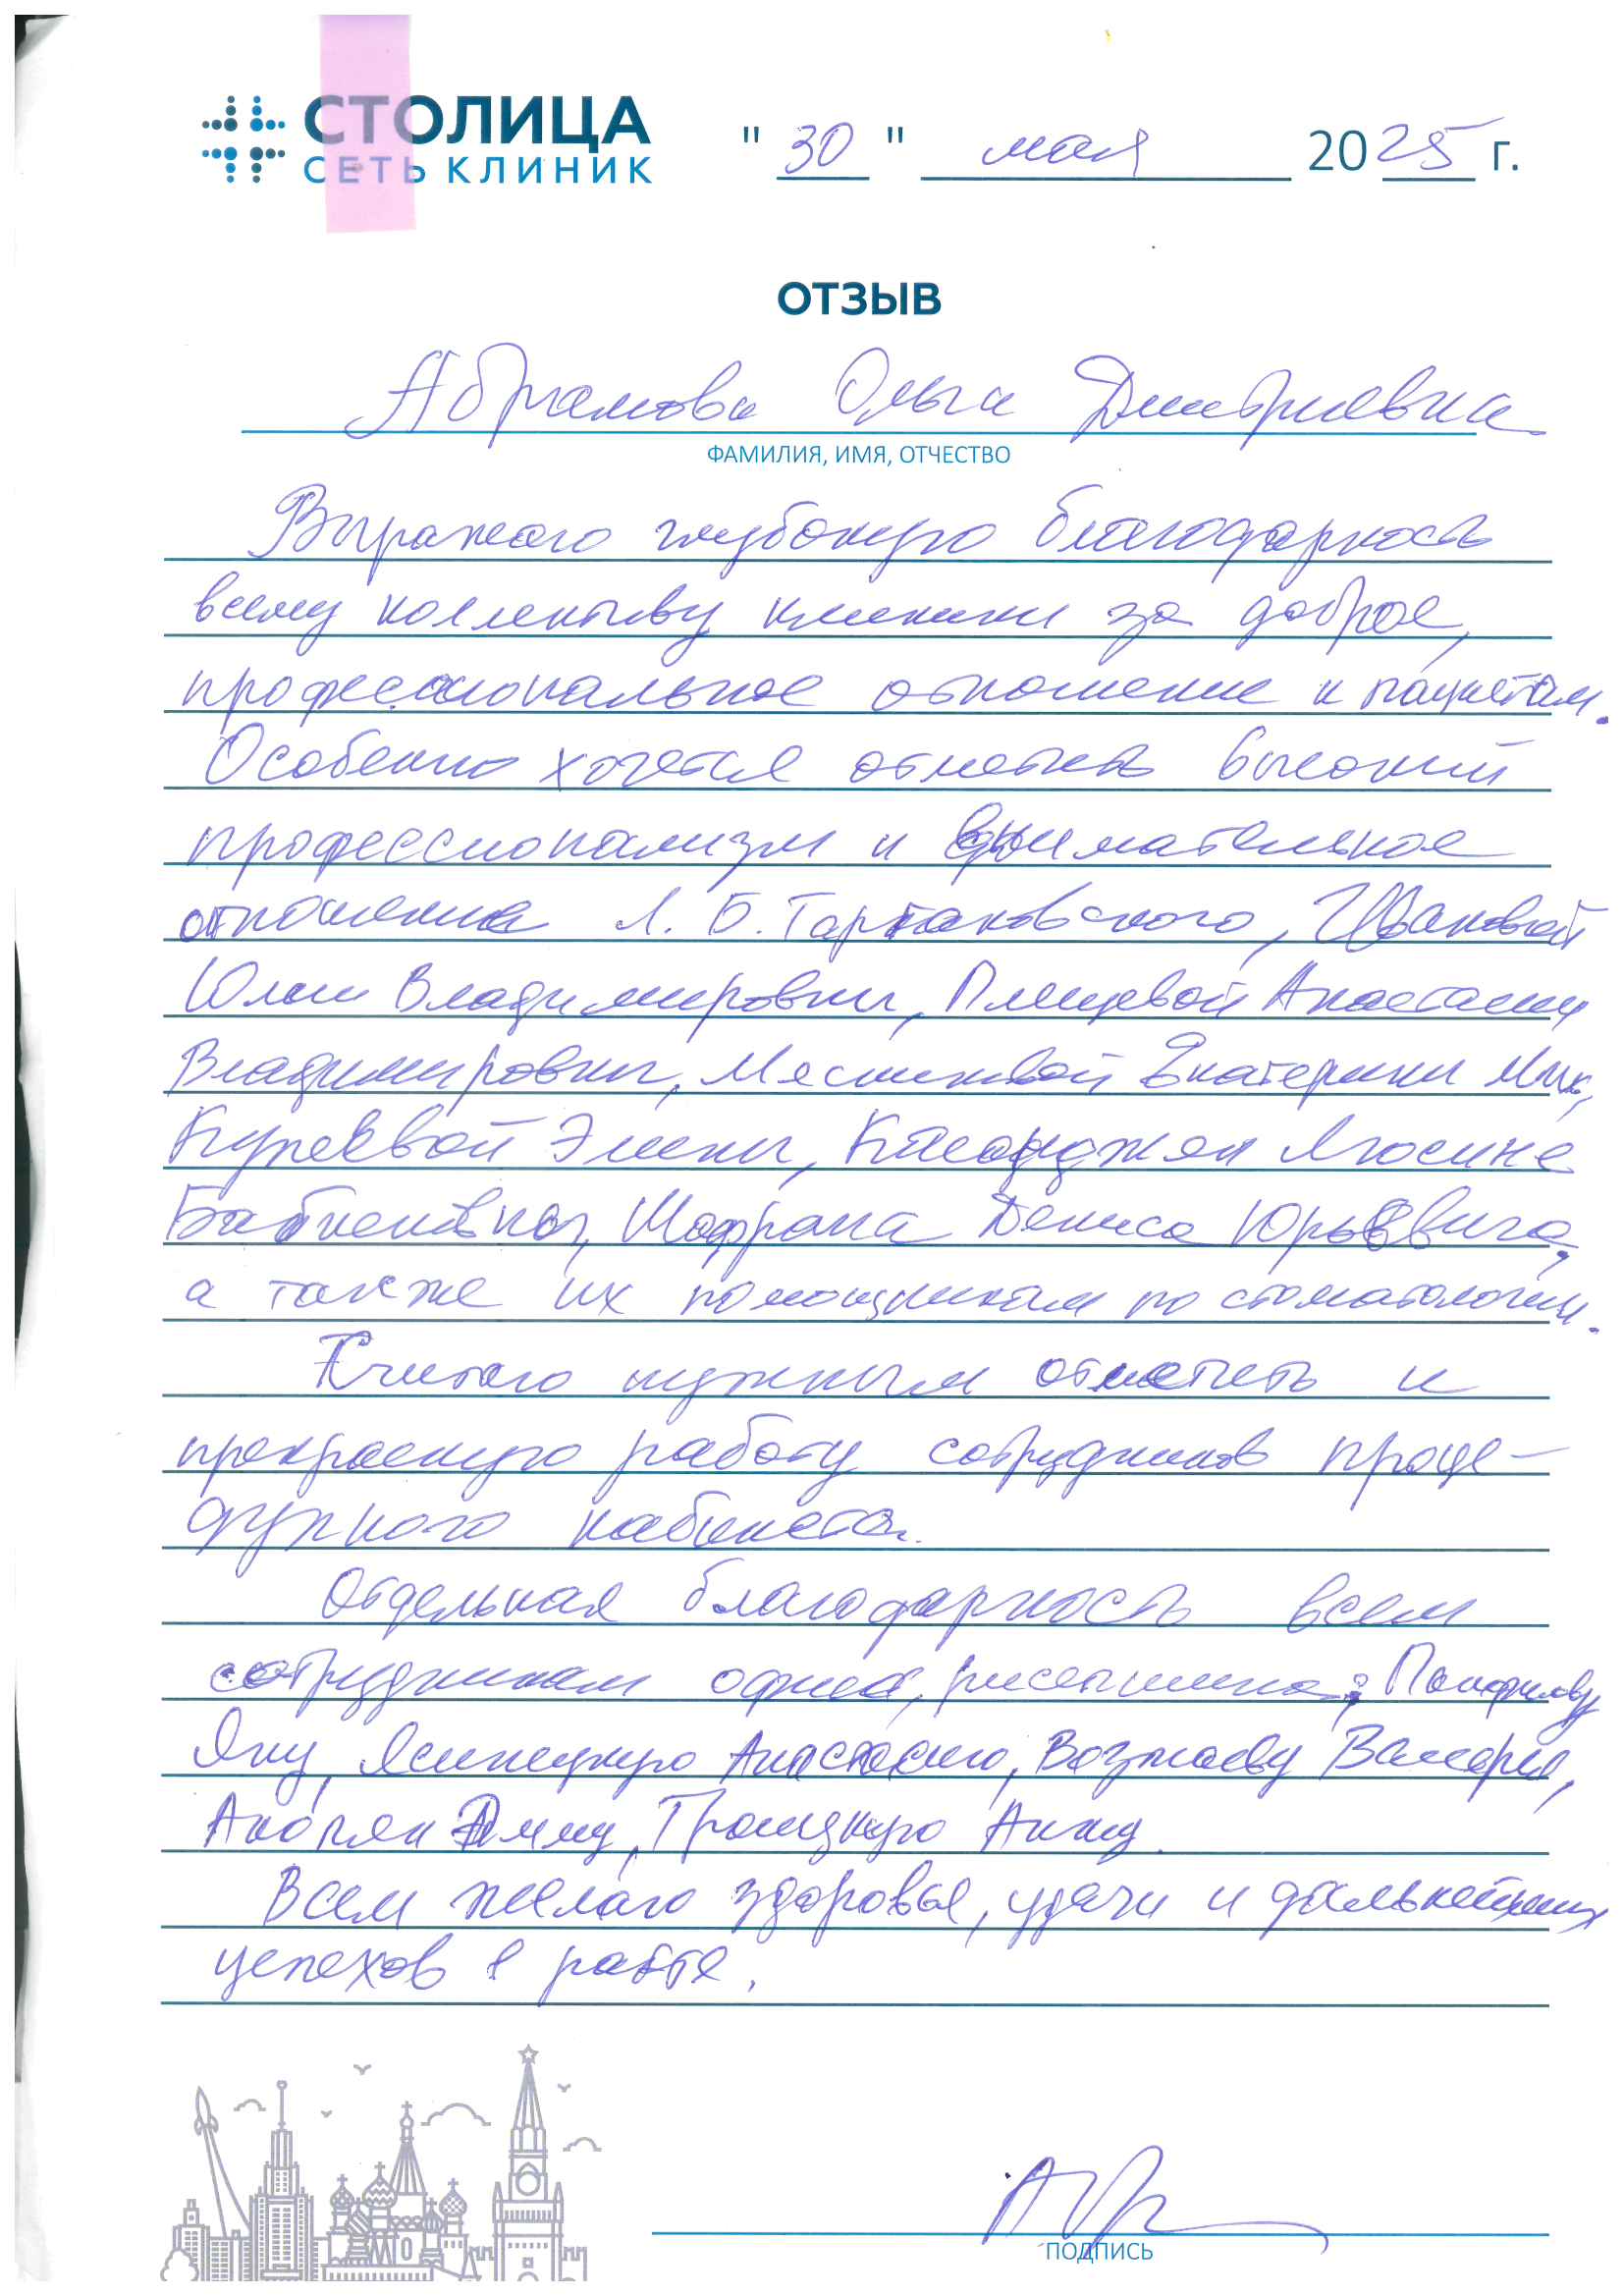 СТОЛИЦА
СЕТЬ КЛИНИК
"30" мая 2025 г.
ОТЗЫВ
Абрамова Ольга Дмитриевна
ФАМИЛИЯ, ИМЯ, ОТЧЕСТВО
Выражаю глубокую благодарность
всему коллективу клиники за доброе,
профессиональное отношение к пациетам.
Особенно хочется отметить высокий
профессионализм и внимательное
отношение Л. Б. Тартаковского, Ивановой
Юлии Владимировны, Плищевой Анастасии
Владимировны, Мясниковой Екатерины Мих,
Елены, Люсине
Шафрана Дениса Юрьевича,
а также их помощникам по стоматологии.
Считаю нужным отметить и
прекрасную работу сотрудников проце-
дурного кабинета.
Отдельная благодарность всем
сотрудникам офиса, ресепшина: Панфилову
Яну, Ясинецкую Анастасию, Валерия,
Акопян Троицкую Анну.
Всем желаю здоровья, удачи и дальнейших
успехов в работе.
ПОДПИСЬ